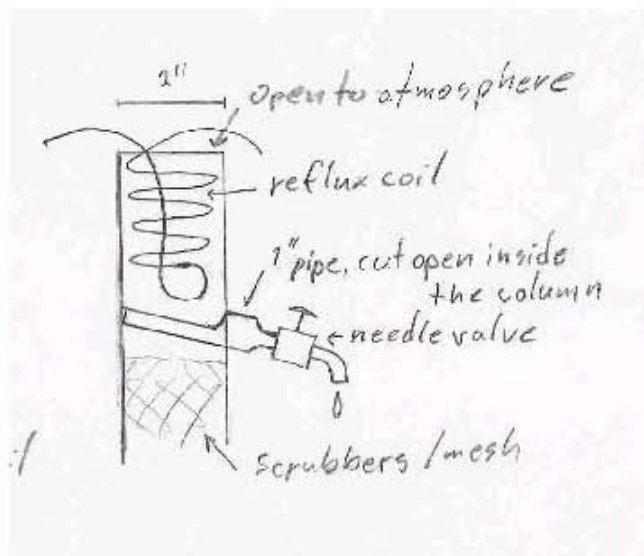 2"
open to atmosphere
reflux coil
1" pipe, cut open inside
the column
needle valve
scrubbers / mesh